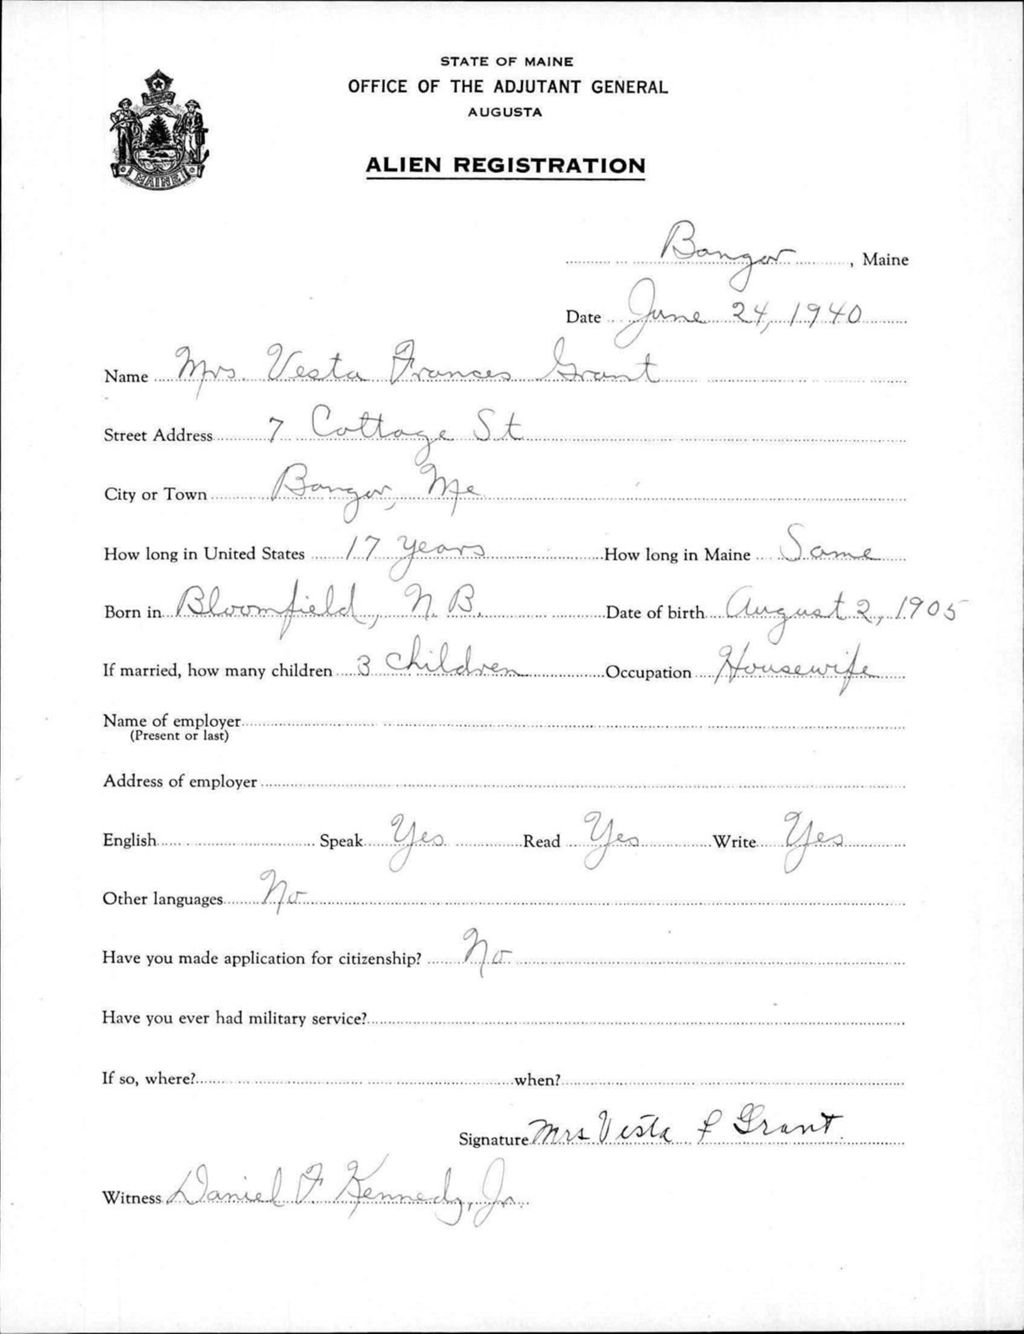 STATE OF MAINE
OFFICE OF THE ADJUTANT GENERAL
AUGUSTA
ALIEN REGISTRATION
MAINE
Bangor, Maine
Date June 24, 1940
Name Mrs. Vesta Frances Grant
Street Address 7 Cottage St
City or Town Bangor, Me
How long in United States 17 years How long in Maine Same
Born in Bloomfield, N.B. Date of birth August 2, 1905
If married, how many children 3 children Occupation Housewife
Name of employer
(Present or last)
Address of employer
English Speak Yes Read Yes Write Yes
Other languages No
Have you made application for citizenship? No
Have you ever had military service?
If so, where? when?
Signature Mrs Vesta F Grant.
Witness Daniel F Kennedy, Jr.